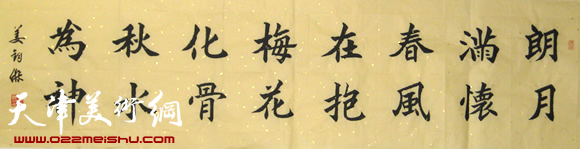 朗月
滿懷
春風
在抱
梅花
化骨
秋水
為神
姜鈞傑
天津美術網
www.022meishu.com